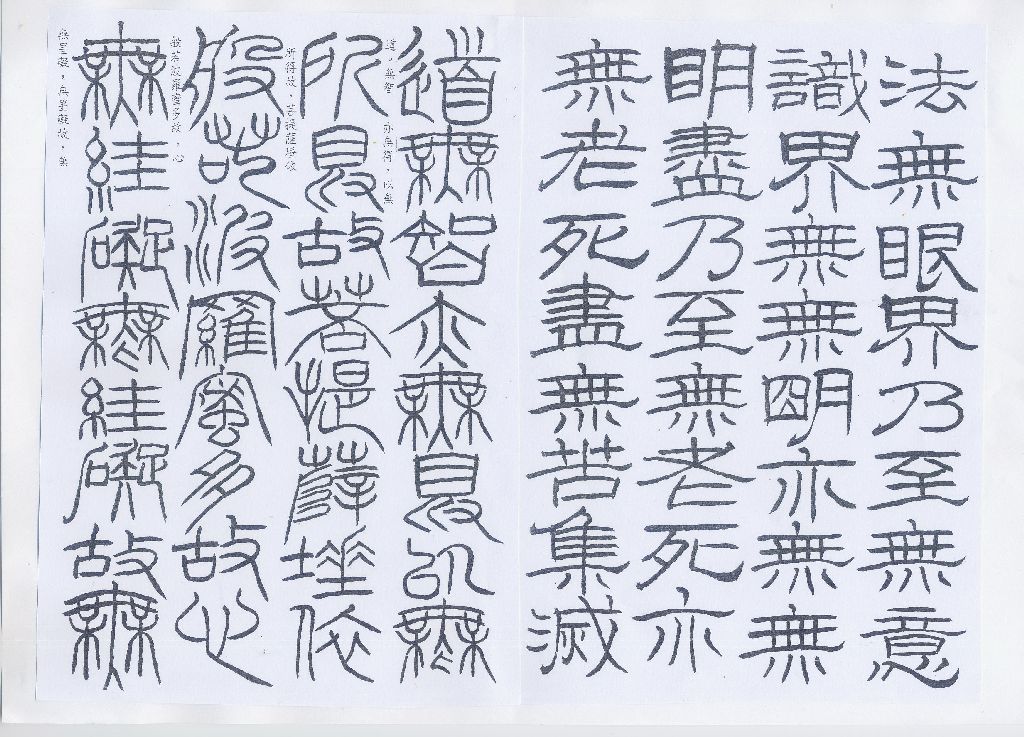 法無眼界乃至無意
識界無無明亦無無
明盡乃至無老死亦
無老死盡無苦集滅
道無智亦無得以無
道，無智 亦無得，以無
所得故菩提薩埵依
所得故，菩提薩埵依
般若波羅蜜多故心
般若波羅蜜多故，心
無絓礙無絓礙故無
無罣礙，無罣礙故，無